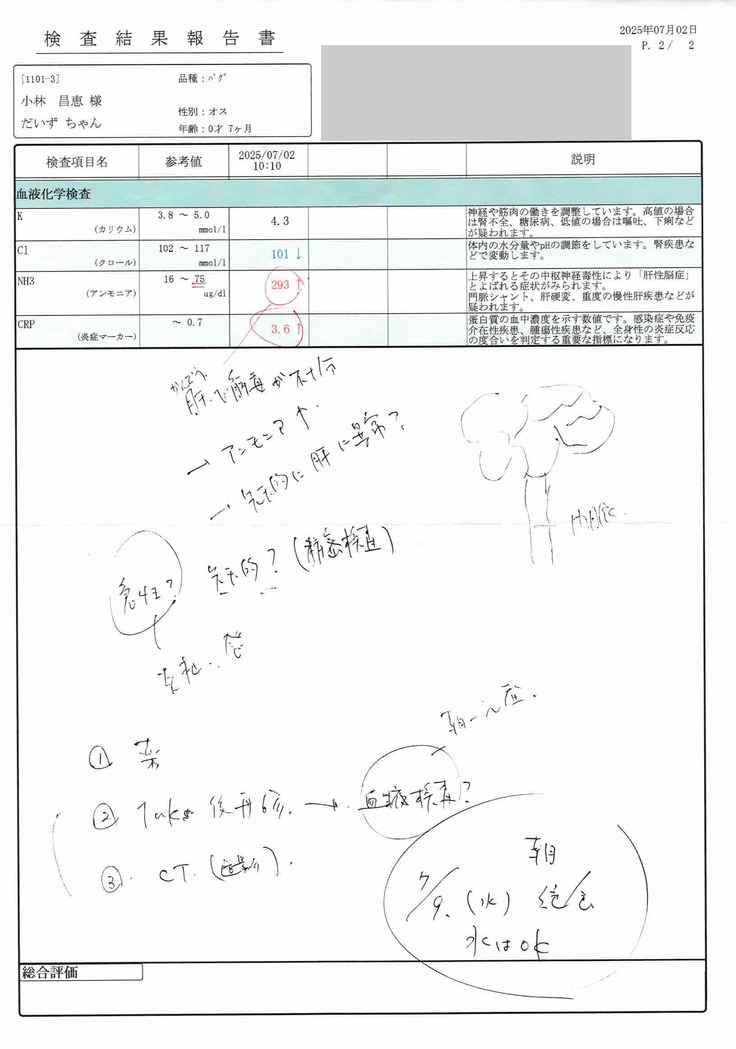 検査結果報告書
2025年07月02日
P. 2/ 2
[1101-3]
小林 昌恵 様
だいず ちゃん
品種：パグ
性別：オス
年齢：0才 7ヶ月
検査項目名 参考値 2025/07/02 10:10 説明
血液化学検査
K (カリウム) 3.8 ～ 5.0 mmol/l 4.3
神経や筋肉の働きを調整しています。高値の場合
は腎不全、糖尿病、低値の場合は嘔吐、下痢など
が疑われます。
Cl (クロール) 102 ～ 117 mmol/l 101 ↓
体内の水分量やpHの調節をしています。腎疾患な
どで変動します。
NH3 (アンモニア) 16 ～ 75 ug/dl 293 ↑
上昇するとその中枢神経毒性により「肝性脳症」
とよばれる症状がみられます。
門脈シャント、肝硬変、重度の慢性肝疾患などが
疑われます。
CRP (炎症マーカー) ～ 0.7 3.6 ↑
蛋白質の血中濃度を示す数値です。感染症や免疫
介在性疾患、腫瘍性疾患など、全身性の炎症反応
の度合いを判定する重要な指標になります。
肝で解毒が不十分
→ アンモニア ↑.
→ 先天的に肝に異常?
急性? 先天的? (精密検査)
① 薬
② 後再診. → 血液検査?
③. CT.
朝
7/9. (水) 絶食
水はok
総合評価